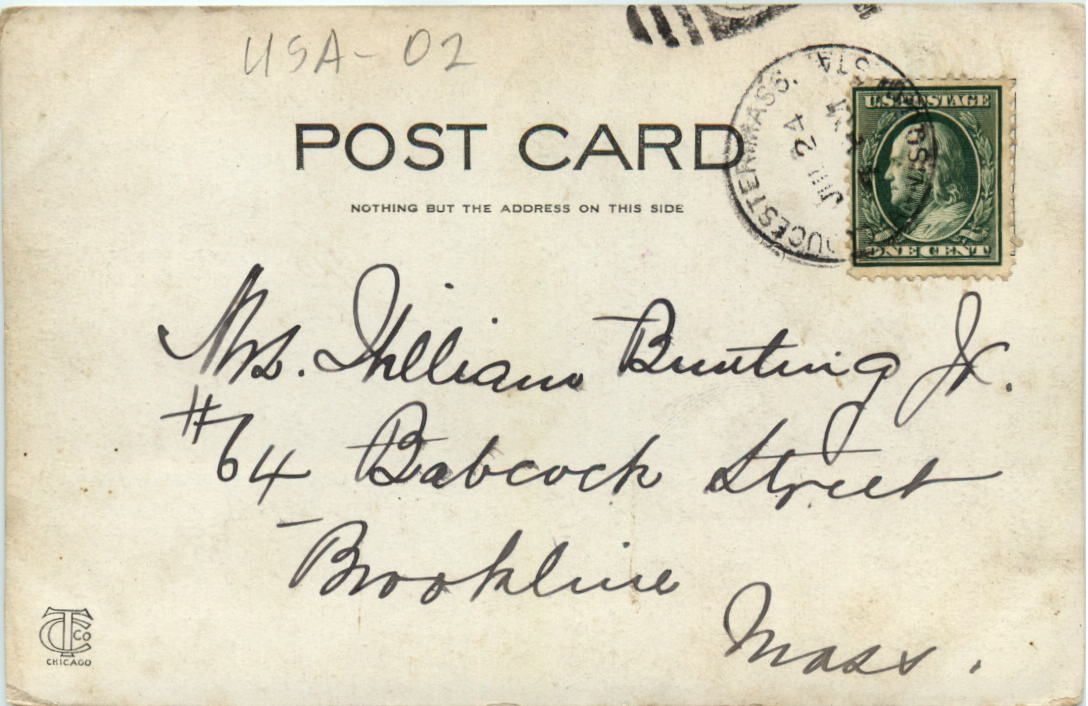 USA-02
POST CARD
NOTHING BUT THE ADDRESS ON THIS SIDE
MASS.
JUL 24
U.S. POSTAGE
ONE CENT
Mrs. William Bunting Jr.
#64 Babcock Street
Brookline
Mass.
CTCo
CHICAGO